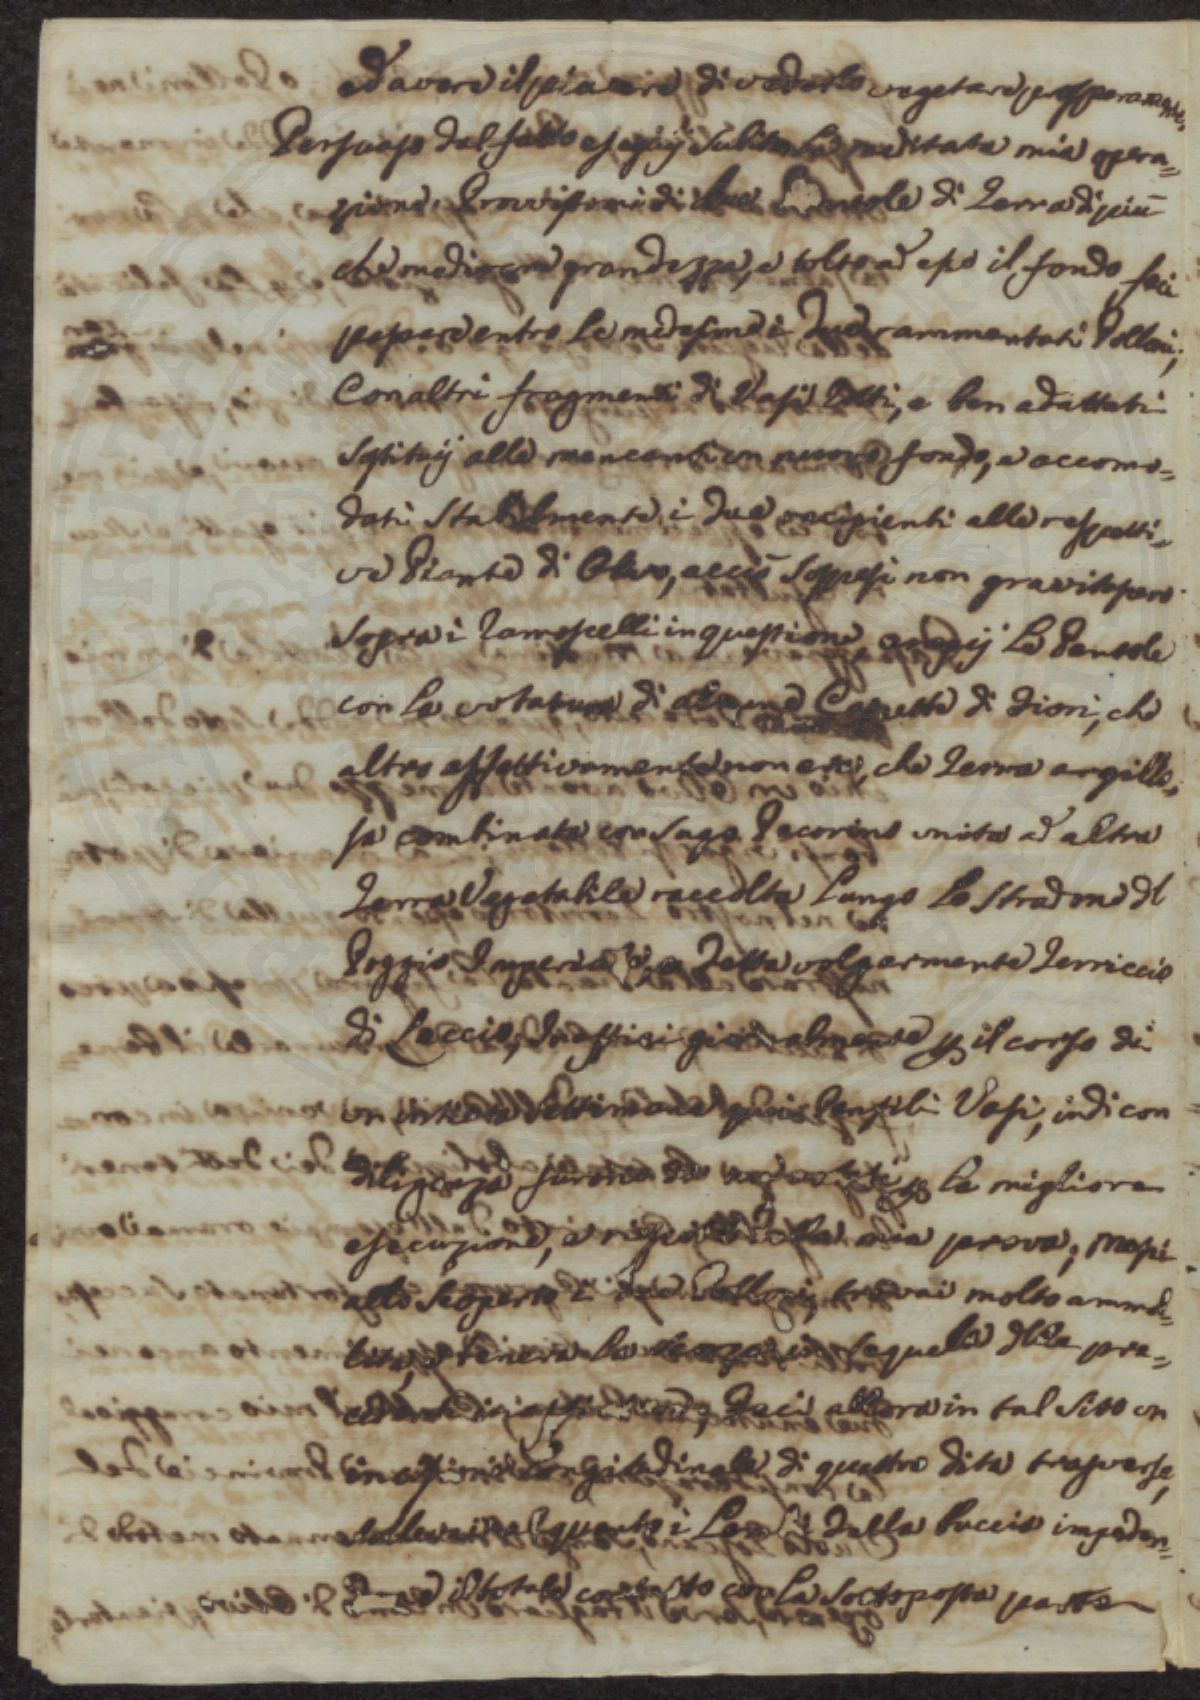 ed avere il piacere di vederlo vegetare prosperamente,
Persuaso dal fatto eseguij subito la meditata mia opera=
zione. Provvistomi di due Pentole di Terra di più
che mediocre grandezza, e tolto ad esse il fondo feci
passare entro le medesime i due rammentati Polloni;
Con altri fragmenti di Vasi Rotti, e ben adattati
sostituij alle mancanti un nuovo fondo, e accomo=
dati stabilmente i due recipienti alle respetti=
ve Piante di Olivo, acciò sospesi non gravitassero
sopra i Ramoscelli in questione, riempij le Pentole
con la votatura di alcune Cassette di Fiori, che
altro effettivamente non era, che Terra argillo=
sa combinata con sugo Pecorino unita ad altra
Terra Vegetabile raccolta lungo lo stradone del
Poggio Imperiale, e detta volgarmente Terriccio
di Leccio; Innaffiai giornalmente per il corso di
un intiera settimana questi Pensili Vasi, indi con
diligenza furono da me votati per la migliore
esecuzione, e riuscita della mia prova; Messi
allo scoperto i due Polloni, trovai molto ammol=
lita, e tenera la scorza in sequela della pre=
cedente innaffiatura, feci allora in tal sito un
incisione longitudinale di quattro dita trasverse,
sollevai alquanto i Lembi della buccia impeden=
done il totale contatto con la sottoposta parte